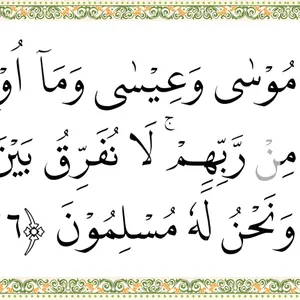 مُوْسٰى وَعِيْسٰى وَمَآ اُو
مِنْ رَّبِّهِمْۚ لَا نُفَرِّقُ بَيْنَ
وَنَحْنُ لَهٗ مُسْلِمُوْنَ ٦